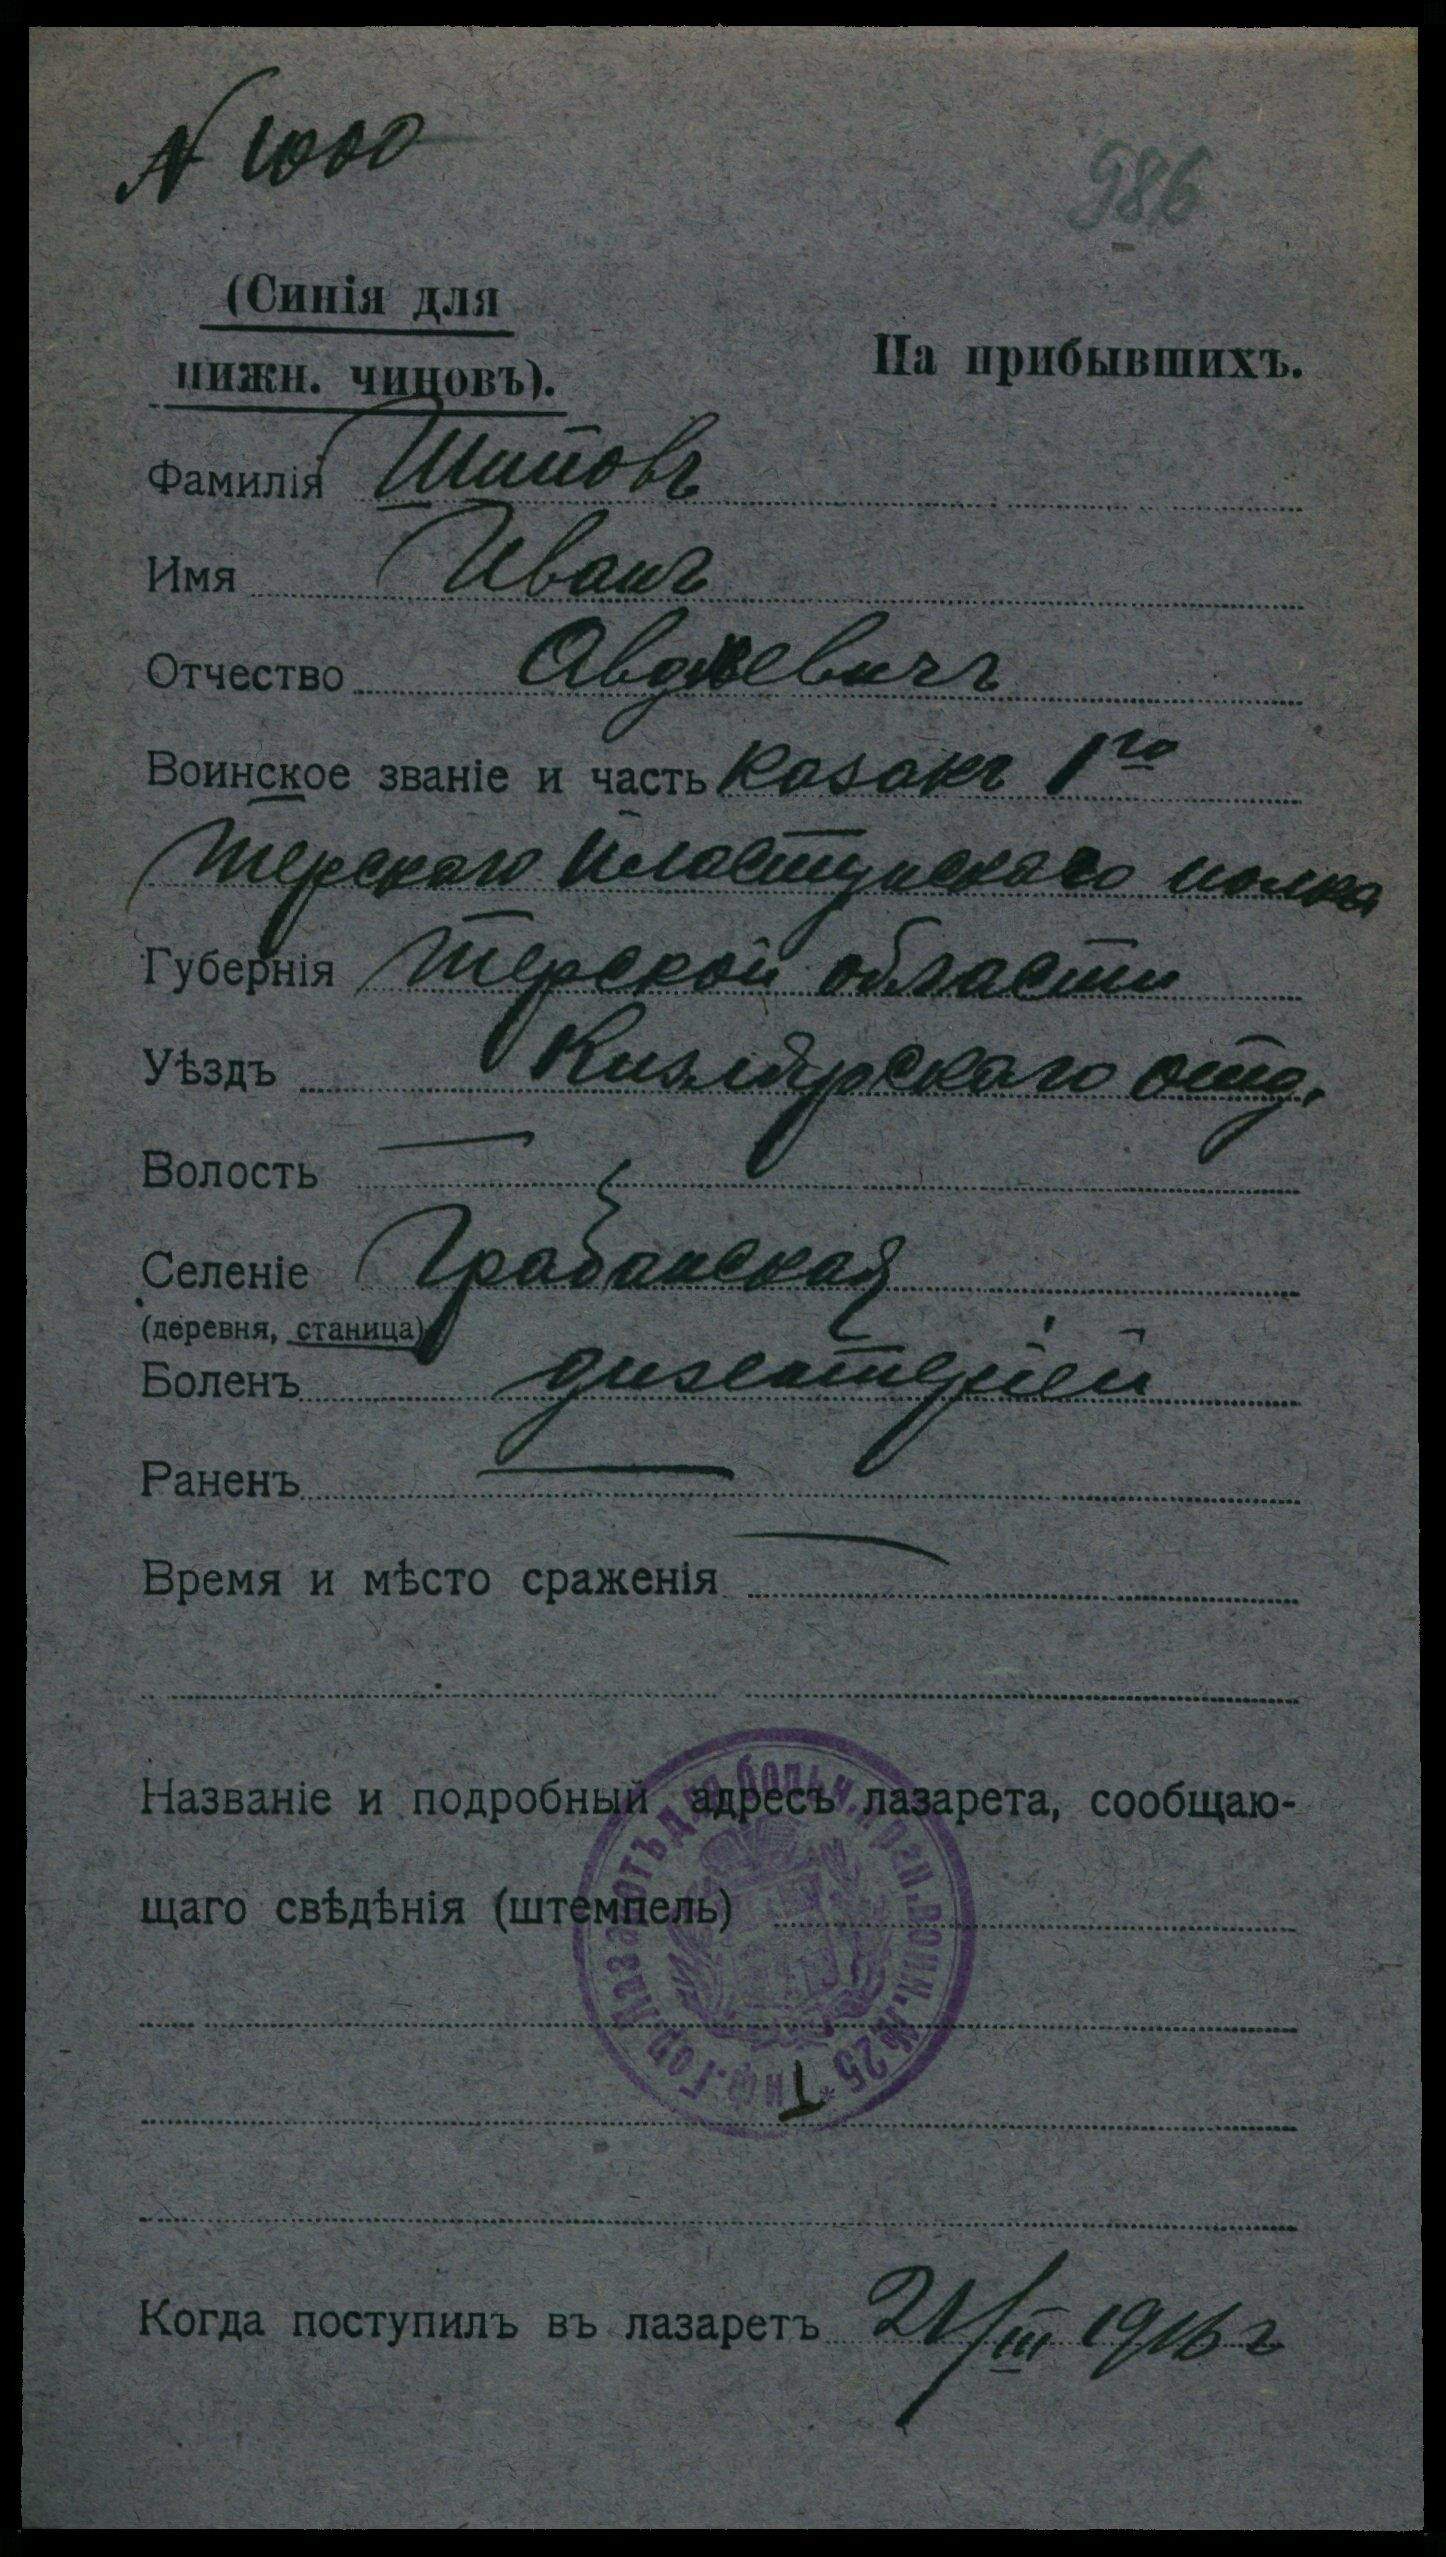 N 1000
986
(Синія для
нижн. чиновъ).
На прибывшихъ.
Фамилія Шиповъ
Имя Иванъ
Отчество Авдѣевичъ
Воинское званіе и часть казакъ 1го
Терскаго Пластунскаго полка
Губернія Терской области
Уѣздъ Кизлярскаго отд.
Волость —
Селеніе Грабанская
(деревня, станица)
Боленъ дизентеріей
Раненъ —
Время и мѣсто сраженія —
Названіе и подробный адресъ лазарета, сообщаю-
щаго свѣдѣнія (штемпель)
Тиф. Гор. Лазаретъ для больн. и ран. воин. № 25 *
Когда поступилъ въ лазаретъ 21/III 1916 г